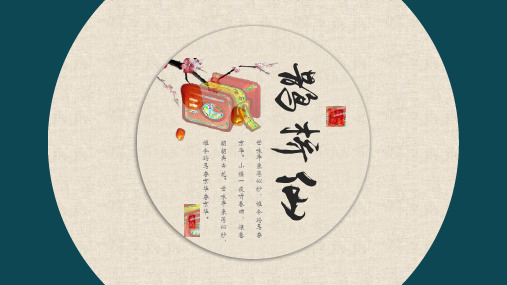 鹊桥仙
世味年来薄似纱，谁令骑马客
京华。小楼一夜听春雨，深巷
明朝卖杏花。世味年来薄似纱，
谁令骑马客京华客京华。